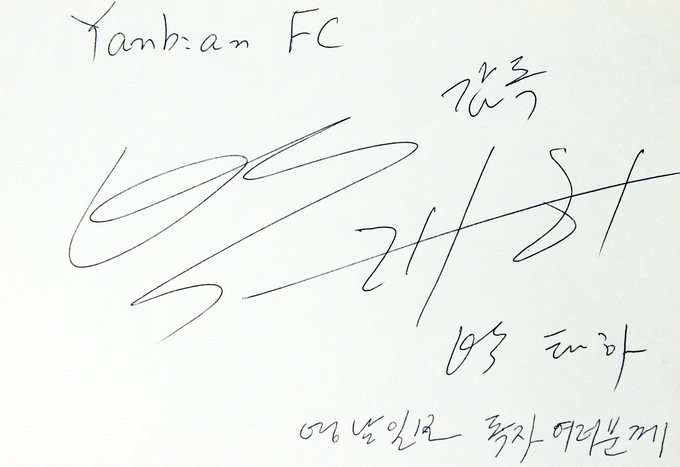 Yanbian FC
감독
박태하
박 태하
영남일보 독자 여러분께